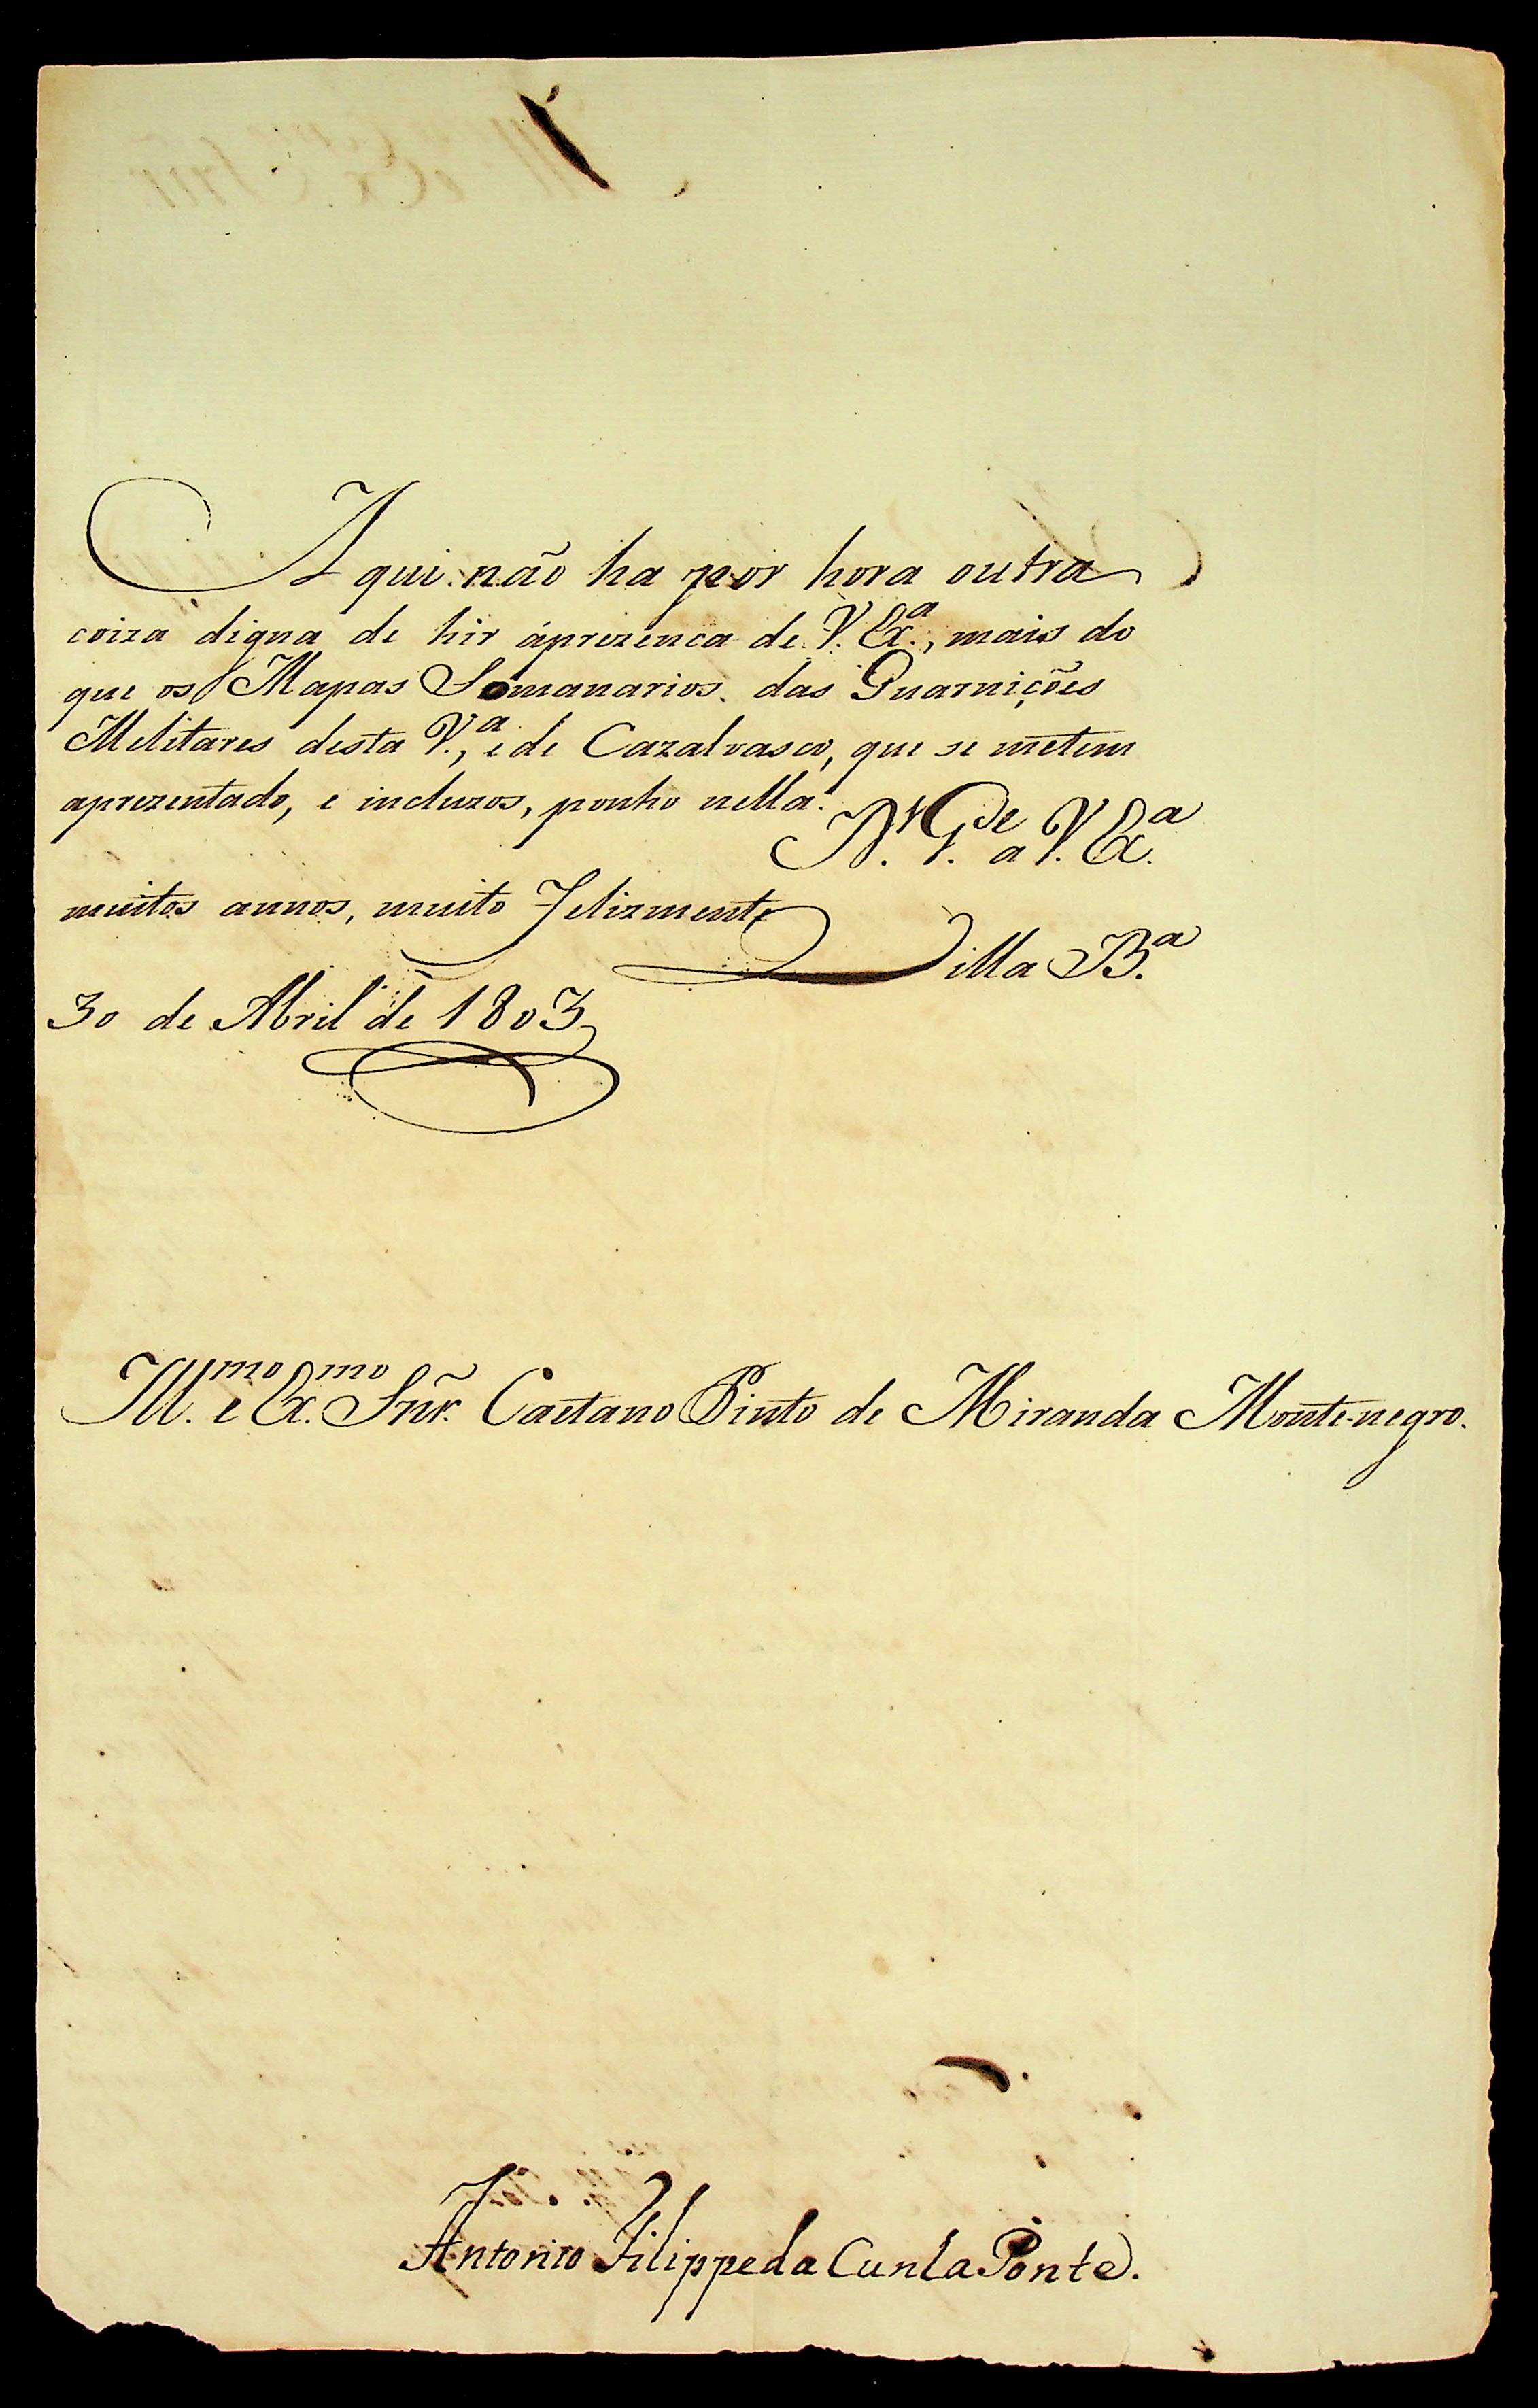 Aqui não ha por hora outra
coiza digna de hir áprezenca de V. Ex.ª, mais do
que os Mapas Somanarios das Guarnições
Melitares desta V.ª, e de Cazalvasco, que se metem
aprezentado, e incluzos, ponho nella.
D.s G.de a V. Ex.ª
muitos annos, muito Felizmente
Villa B.ª
30 de Abril de 1803
Ill.mo e Ex.mo Sñr. Caetano Pinto de Miranda Monte-negro.
Antonio Filippe da Cunha Ponte.